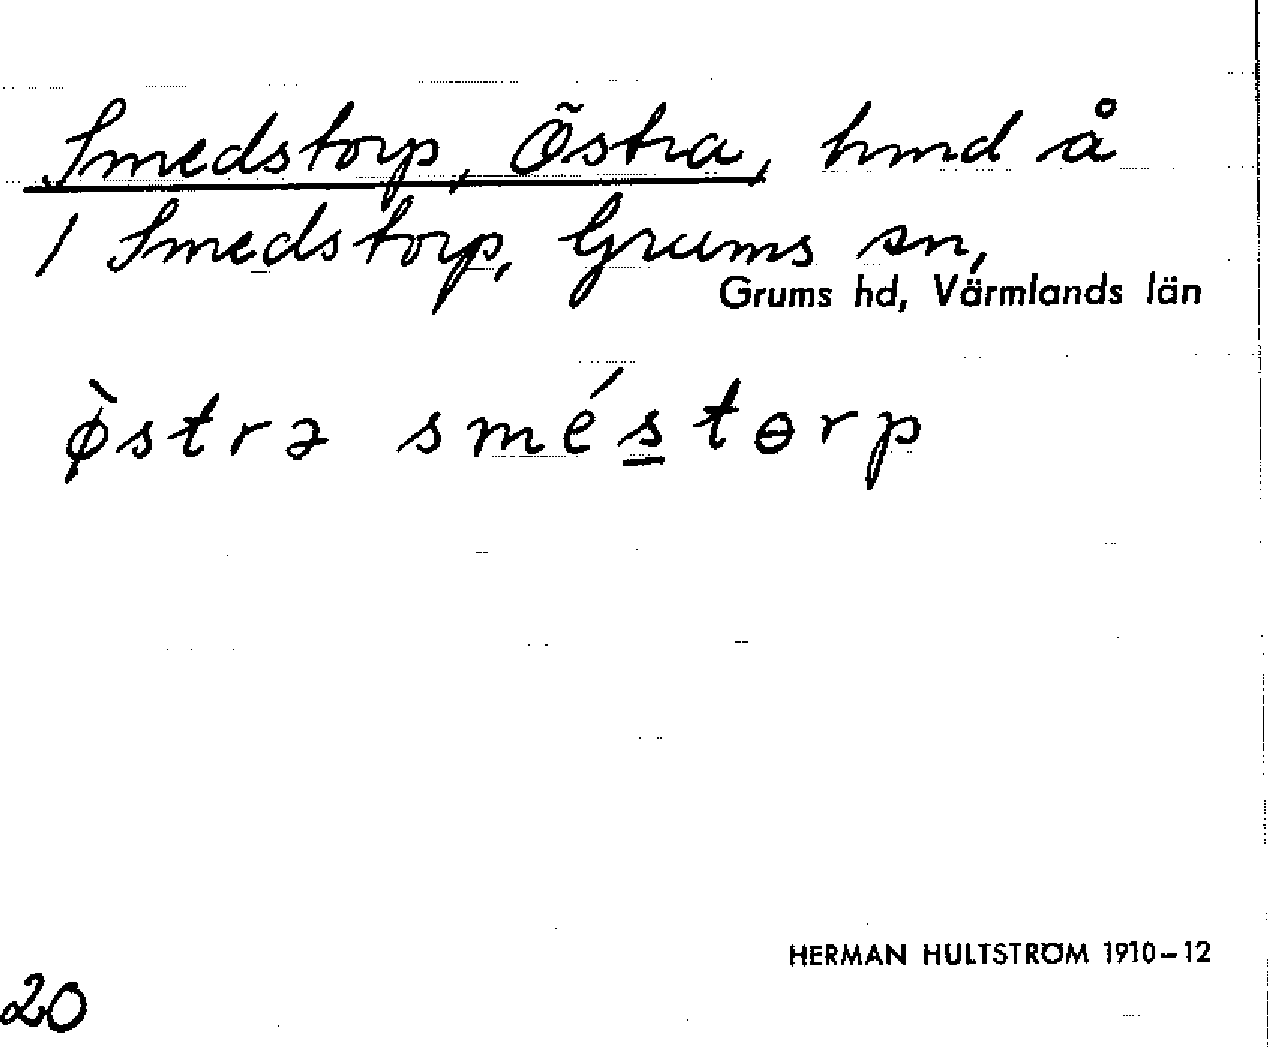 Smedstorp, Östra, hmd å
1 Smedstorp, Grums sn,
Grums hd, Värmlands län
ø̀strə smés̲tɵrp
HERMAN HULTSTRÖM 1910–12
20